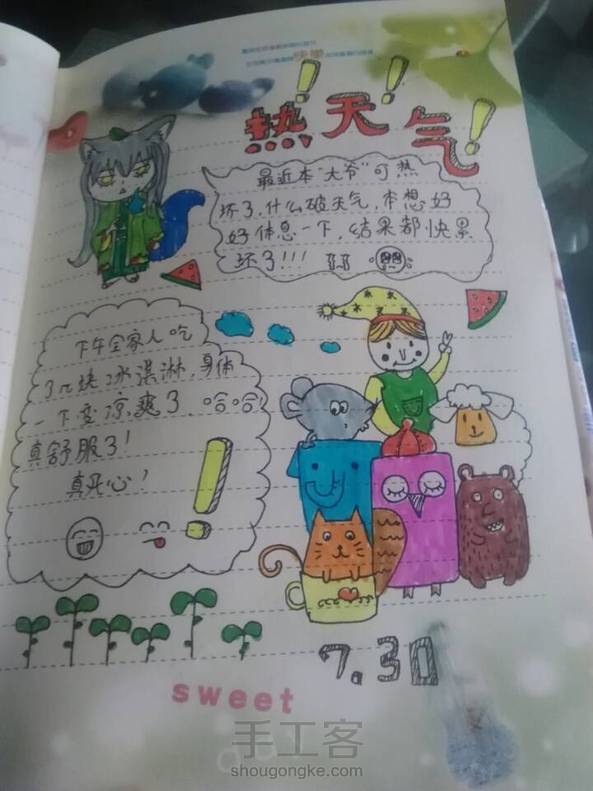 熱!天!气!
最近本“大爷”可热
坏了,什么破天气,本想好
好休息一下,结果都快累
坏了!!!
下午全家人吃
了几块冰淇淋,身体
一下变凉爽了,哈哈!
真舒服了!
真开心!
7.30
sweet
手工客
shougongke.com